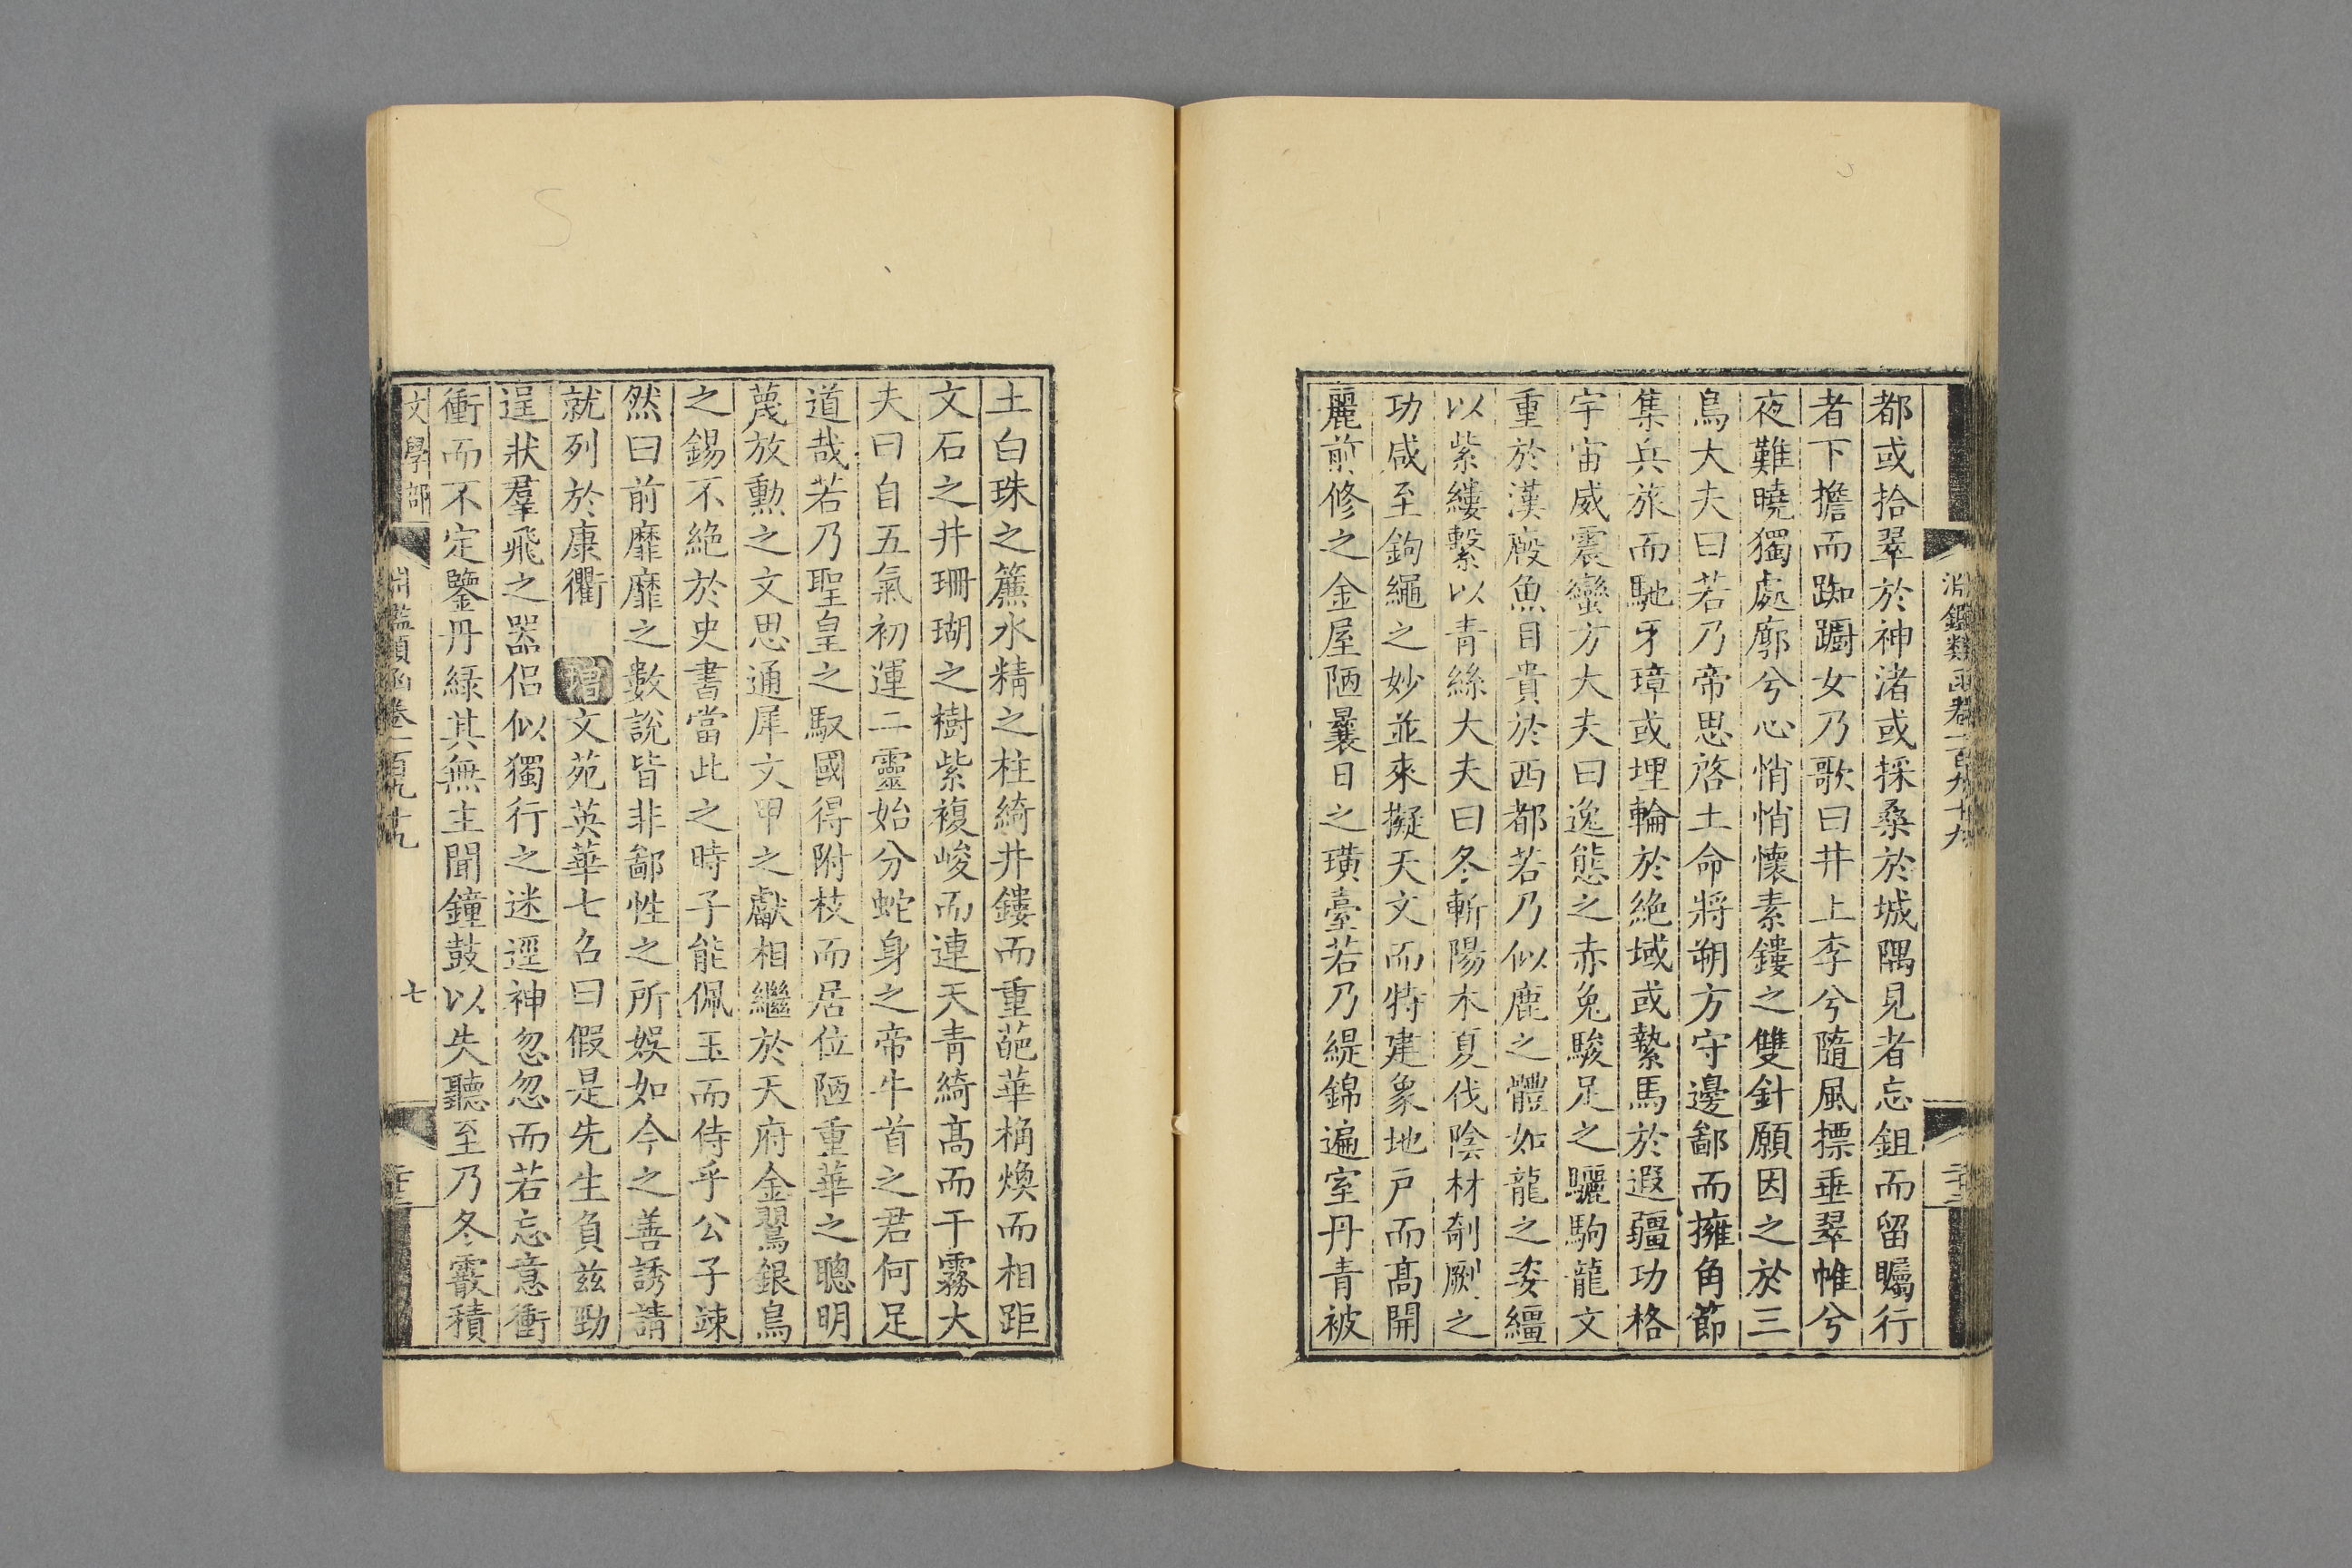 淵鑑類函卷一百九十九
都或拾翠於神渚或採桑於城隅見者忘鉏而留矚行
者下擔而踟躕女乃歌曰井上李兮隨風摽垂翠帷兮
夜難曉獨處廓兮心悄悄懷素鏤之雙針願因之於三
烏大夫曰若乃帝思啓土命將朔方守邊鄙而擁角節
集兵旅而馳牙璋或埋輪於絶域或縶馬於遐疆功格
宇宙威震蠻方大夫曰逸態之赤兔駿足之驪駒龍文
重於漢殿魚目貴於西都若乃似鹿之體如龍之姿繮
以紫縷繫以青絲大夫曰冬斬陽木夏伐陰材剞劂之
功咸至鉤繩之妙並來擬天文而特建象地戸而髙開
麗前修之金屋陋曩日之璜臺若乃緹錦遍室丹青被
土白珠之簾水精之柱綺井鏤而重葩華桷煥而相距
文石之井珊瑚之樹紫複峻而連天青綺髙而干霧大
夫曰自五氣初運二靈始分蛇身之帝牛首之君何足
道哉若乃聖皇之馭國得附枝而居位陋重華之聰明
蔑放勲之文思通犀文甲之獻相繼於天府金翳銀烏
之錫不絶於史書當此之時子能佩玉而侍乎公子竦
然曰前靡靡之數說皆非鄙性之所娱如今之善誘請
就列於康衢 增文苑英華七召曰假是先生負茲勁
逞狀羣飛之罘侣似獨行之迷逕神忽忽而若忘意衝
衝而不定鑒丹緑其無主聞鐘鼓以失聽至乃冬霰積
文學部
淵鑑類函卷一百九十九
七